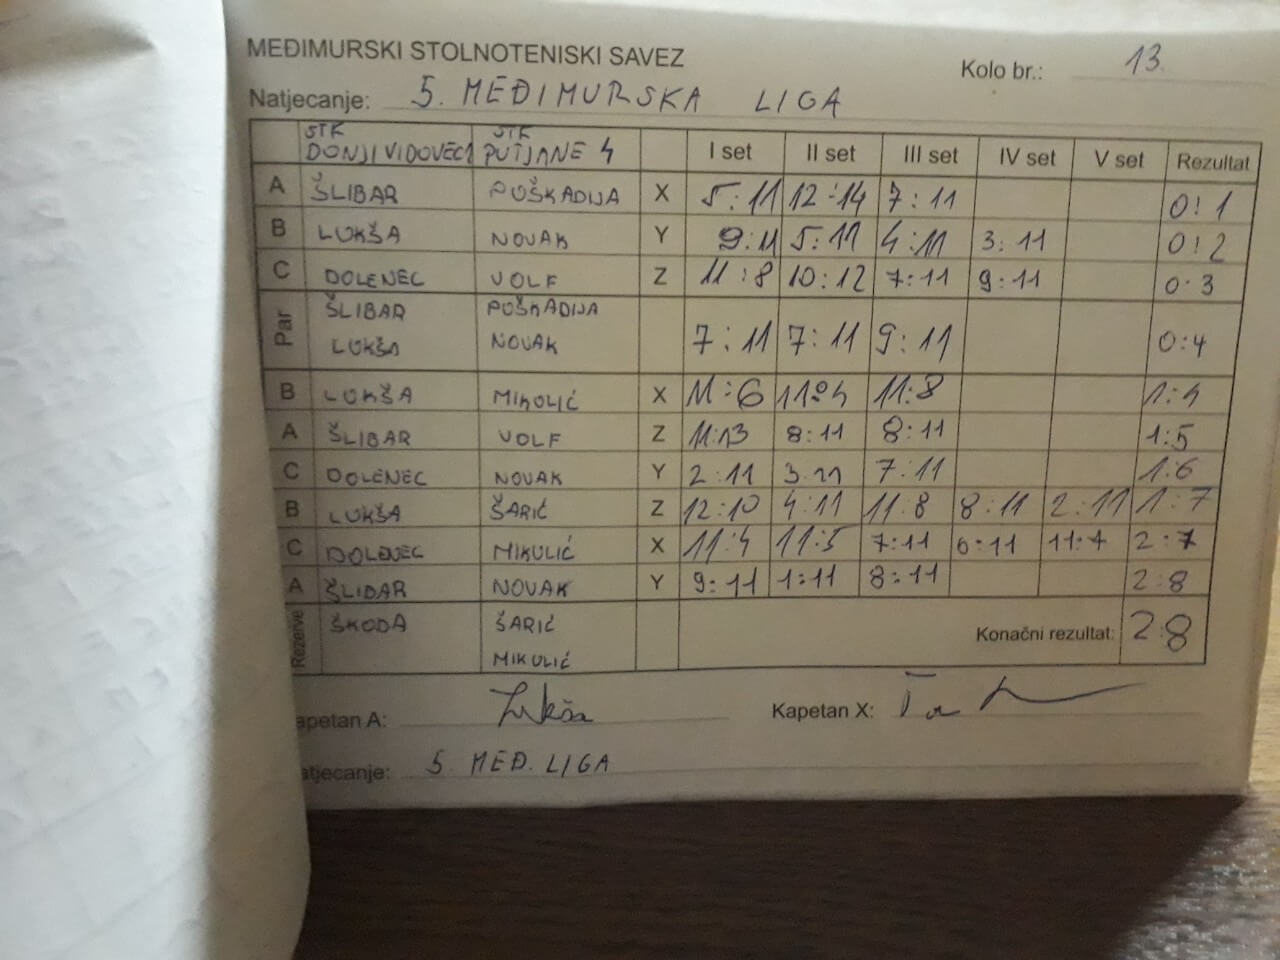 MEĐIMURSKI STOLNOTENISKI SAVEZ
Kolo br.: 13.
Natjecanje: 5. MEĐIMURSKA LIGA
STK DONJI VIDOVEC STK PUTJANE 4 I set II set III set IV set V set Rezultat
A ŠLIBAR POŠKADIJA X 5:11 12:14 7:11 0:1
B LUKŠA NOVAK Y 9:11 5:11 4:11 3:11 0:2
C DOLENEC VOLF Z 11:8 10:12 7:11 9:11 0:3
Par ŠLIBAR POŠKADIJA
LUKŠA NOVAK 7:11 7:11 9:11 0:4
B LUKŠA MIKULIĆ X 11:6 11:4 11:8 1:4
A ŠLIBAR VOLF Z 11:13 8:11 8:11 1:5
C DOLENEC NOVAK Y 2:11 3:11 7:11 1:6
B LUKŠA ŠARIĆ Z 12:10 4:11 11:8 8:11 2:11 1:7
C DOLENEC MIKULIĆ X 11:4 11:5 7:11 6:11 11:7 2:7
A ŠLIBAR NOVAK Y 9:11 1:11 8:11 2:8
Rezerve ŠKODA ŠARIĆ Konačni rezultat: 2:8
MIKULIĆ
apetan A: Lukša Kapetan X:
atjecanje: 5. MEĐ. LIGA